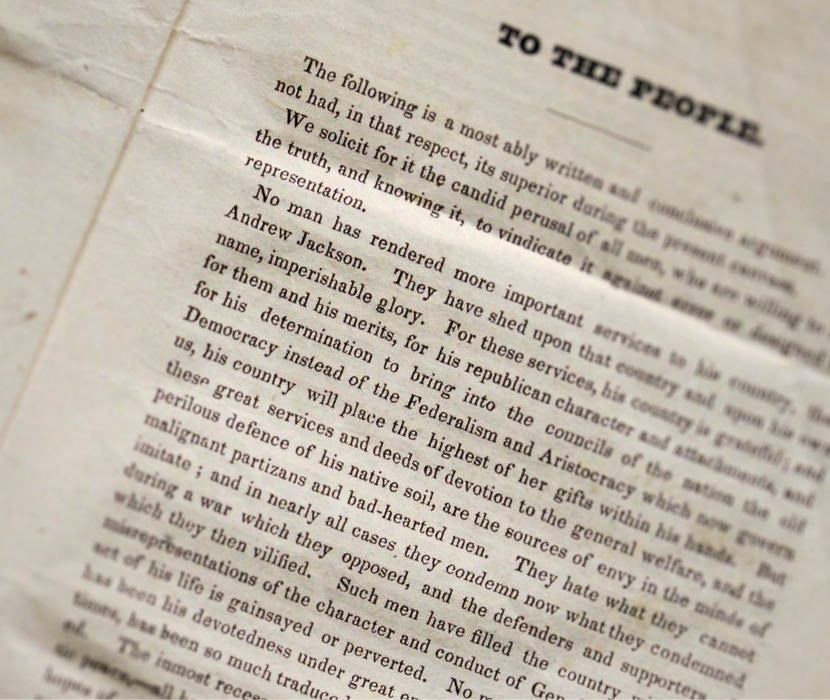 TO THE PEOPLE.
The following is a most ably written and conclusive argument.
not had, in that respect, its superior during the present canvass.
We solicit for it the candid perusal of all men, who are willing to
the truth, and knowing it, to vindicate it against error or designed
representation.
No man has rendered more important services to his country,
Andrew Jackson. They have shed upon that country and upon his own
name, imperishable glory. For these services, his country is grateful; and
for them and his merits, for his republican character and attachments, and
for his determination to bring into the councils of the nation the old
Democracy instead of the Federalism and Aristocracy which now govern
us, his country will place the highest of her gifts within his hands. But
these great services and deeds of devotion to the general welfare, and the
perilous defence of his native soil, are the sources of envy in the minds of
malignant partizans and bad-hearted men. They hate what they cannot
imitate; and in nearly all cases they condemn now what they condemned
during a war which they opposed, and the defenders and supporters
which they then vilified. Such men have filled the country
misrepresentations of the character and conduct of Gen
act of his life is gainsayed or perverted. No
has been his devotedness under great
times, has been so much traduc
ed. The inmost rece
all
hopes of